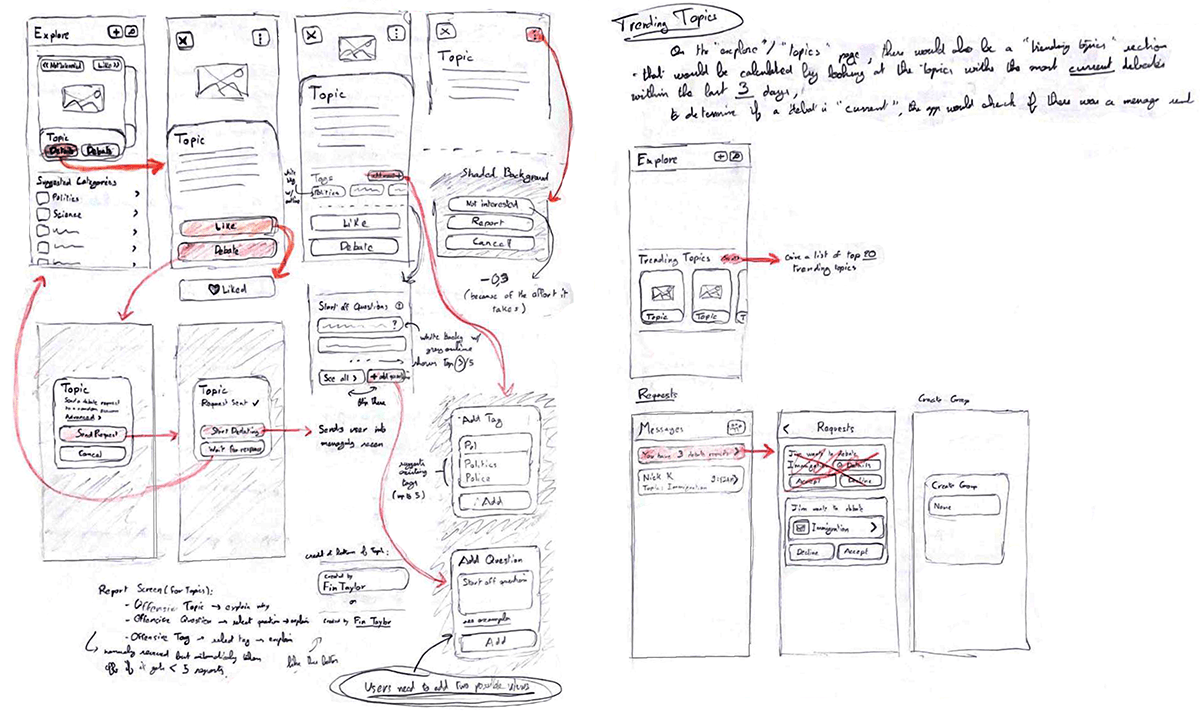 Explore
<< Not Interested
Like >>
Topic
Debate
Debate
Suggested Categories
Politics
Science
Topic
Like
Debate
Liked
Topic
Tags
Politics
Like
Debate
Start off Questions
?
See all >
white backg w/
grey outline
shows Top 3/5
Topic
Shaded Background
Not interested
Report
Cancel
-0.3
(because of the effort it
takes)
Topic
Send a debate request
to a random person
Advanced >
Send Request
Cancel
Topic
Request Sent ✓
Start Debating
Wait for response
Sends user into
messaging screen
Add Tag
Pol
Politics
Police
Add
suggests
existing
tags
(up to 5)
Add Question
Start off question
see examples
Add
Users need to add two possible views
credit at bottom of Topic:
created by
Fin Taylor
or
created by Fin Taylor
like this better
Report Screen (For Topics):
- Offensive Topic → explain why
- Offensive Question → select question → explain
- Offensive Tag → select tag → explain
manually reviewed but automatically taken
off if it gets < 5 reports
Trending Topics
On the "explore" / "topics" page, there would also be a "trending topics" section
that would be calculated by looking at the topics with the most current debates
within the last 3 days,
to determine if a debate is "current", the app would check if there was a message sent
Explore
Trending Topics
Topic
Topic
T
Give a list of top 10
trending topics
Requests
Messages
You have 3 debate requests >
Nick K
Topic: Immigration
< Requests
Jim wants to debate
Immigration
Details
Accept
Decline
Jim wants to debate
Immigration >
Decline
Accept
Create Group
Create Group
Name